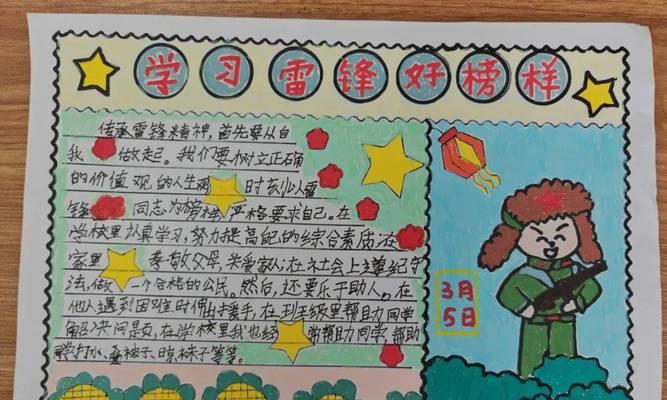 学习雷锋好榜样
传承雷锋精神,首先要从自
我做起。我们要树立正确
的价值观的人生 时刻以雷
锋 同志为榜样严格要求自己。在
学校里认真学习,努力提高自己的综合素质;在
家里 孝敬父母,关爱家人;在社会上遵纪守
法,做一个合格的公民。然后,还要乐于助人,在
他人遇到困难时伸出援手,在班级里帮助同学
解决问题,在学校里我也经 帮助同学,帮助
打水、叠被子、晾袜子等等。
3月
5日